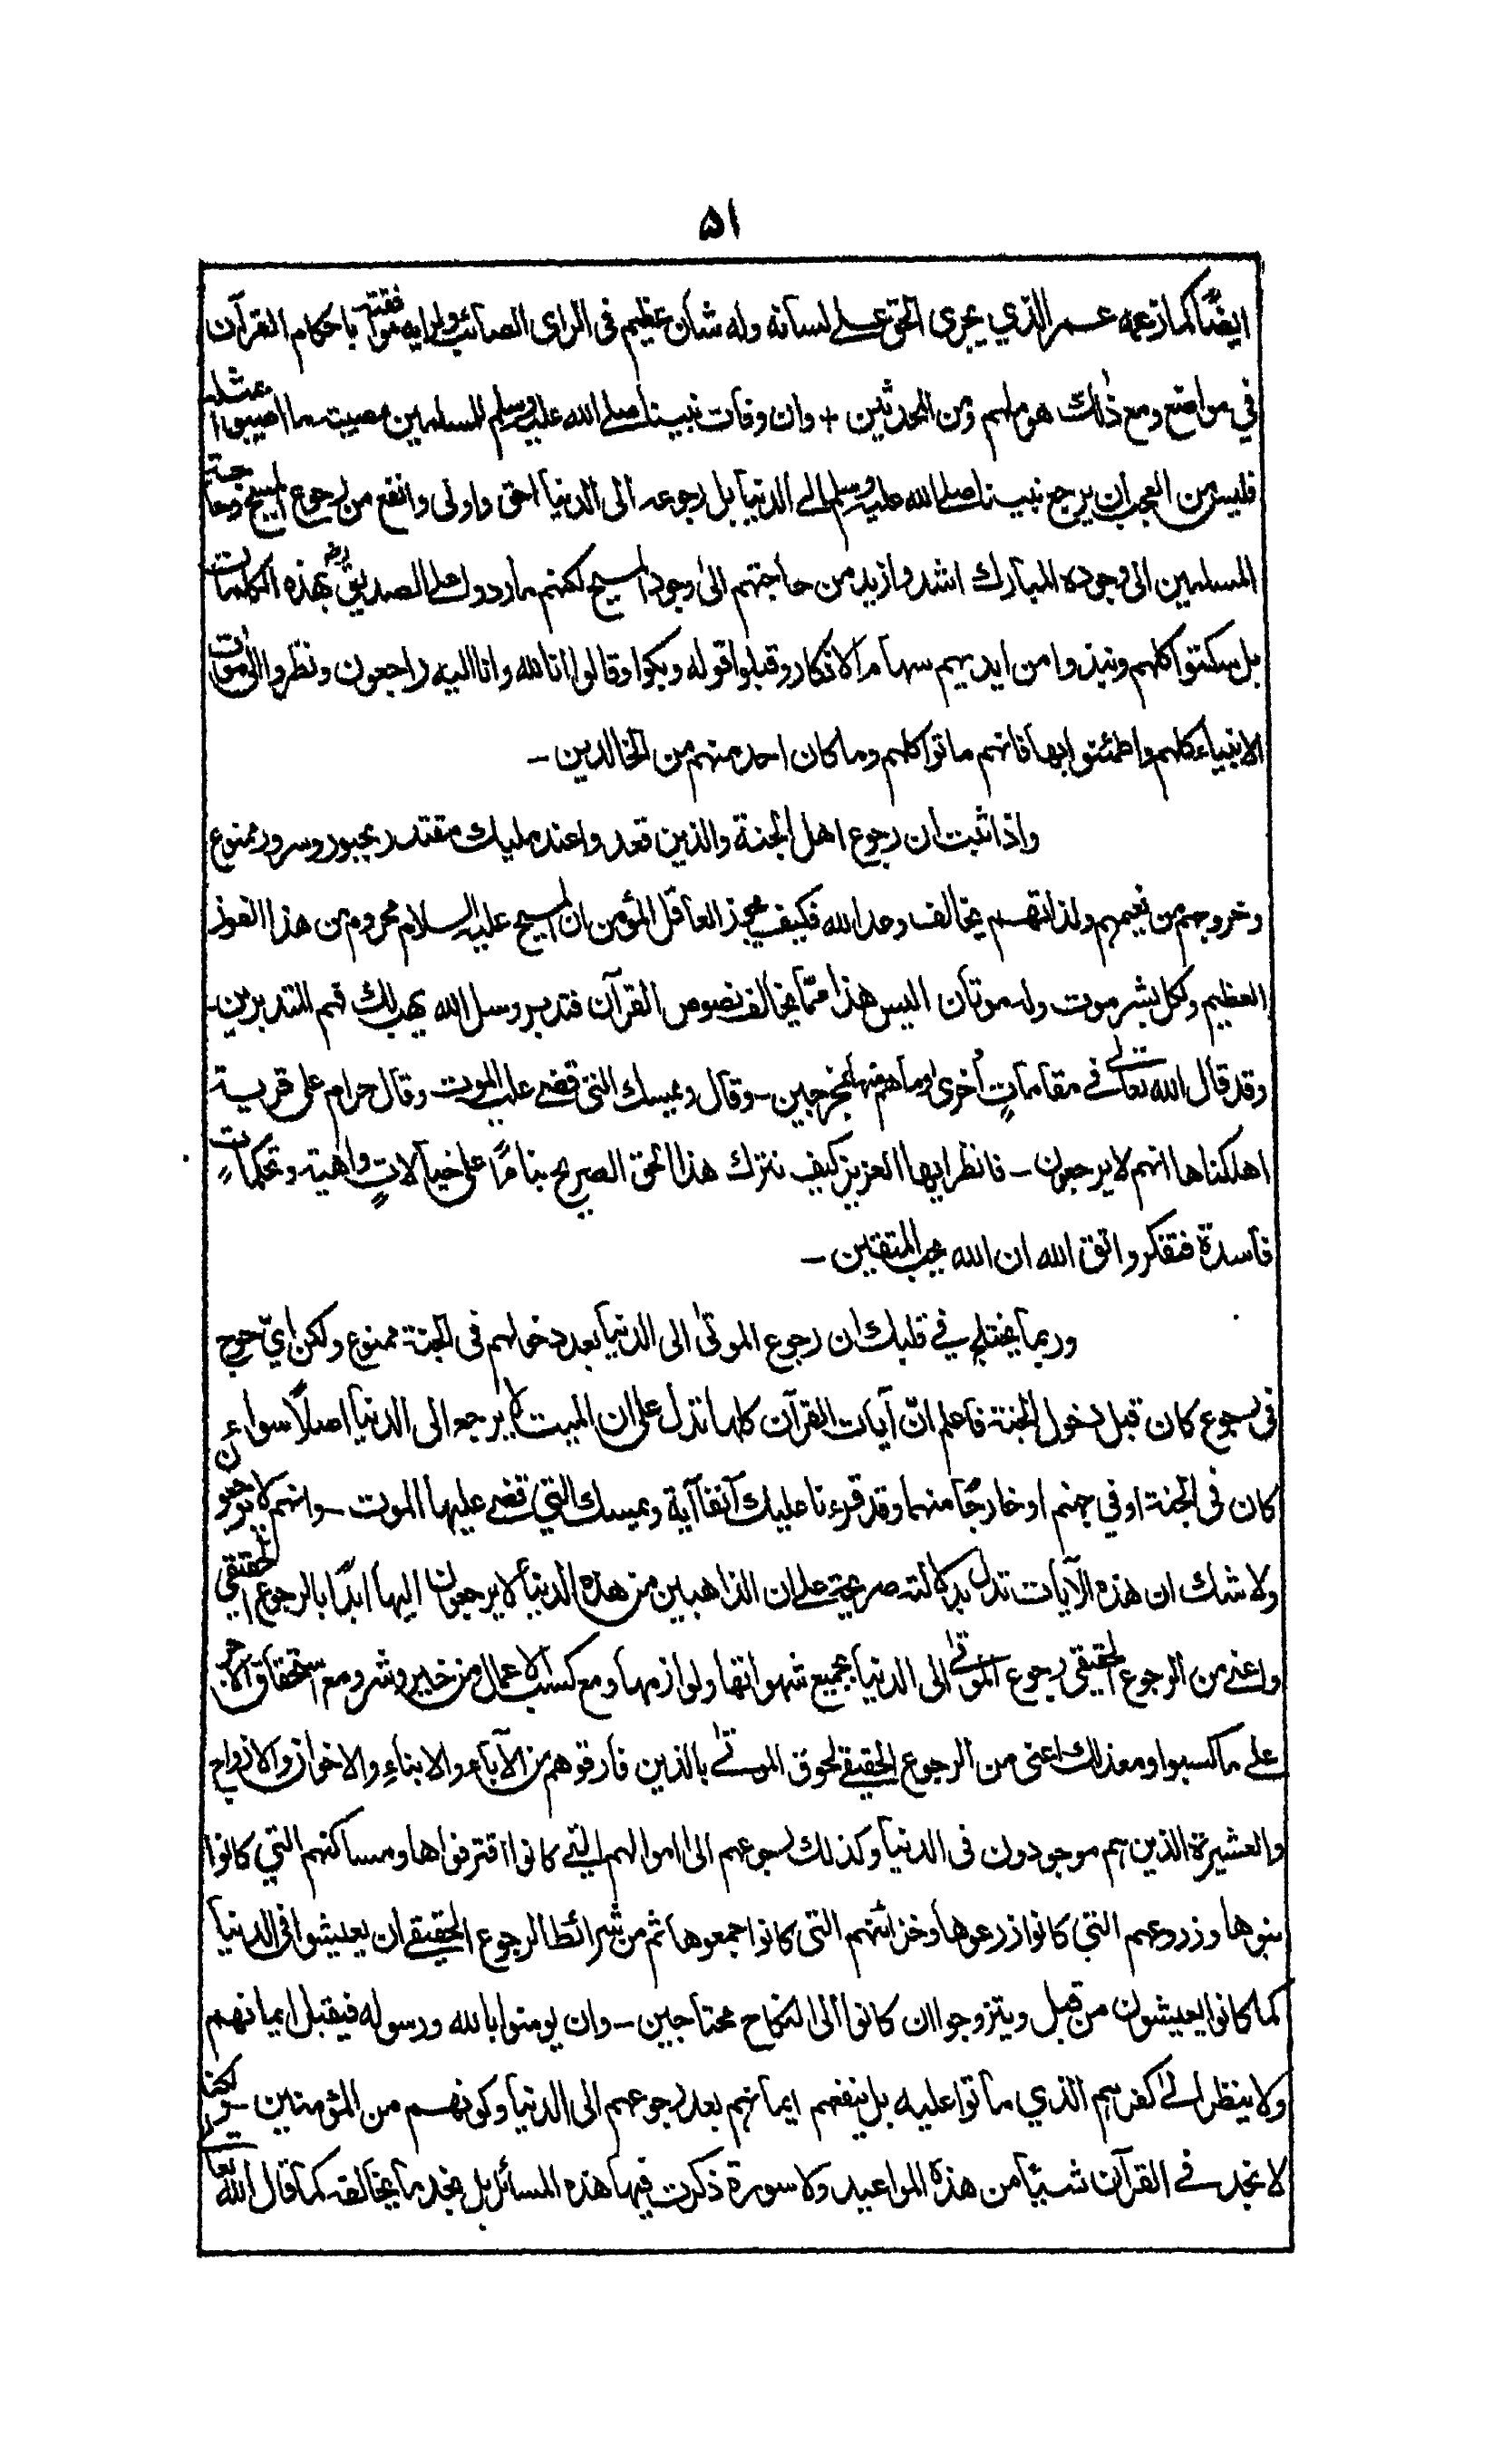 ۵۱
ايضًا كما زعمه عمر الذي يجرى الحق على لسانه وله شان عظيم فى الراى الصائب ولرايه موافقة باحكام القرآن
في مواضع ومع ذٰلك هو ملهم ومن المحدثين + وان وفات نبينا صلے الله عليه وسلم للمسلمين مصيبة ما اصيبوا بمثله
فليس من العجب ان يرجع نبينا صلے الله عليه وسلم الے الدنيا بل رجوعه الى الدنيا احق واولى وانفع من رجوع المسيح وحاجة
المسلمين الى وجوده المبارك اشد وازيد من حاجتهم الىٰ وجود المسيح لكنهم ما ردوا على الصديق رضـ بهذه الكلمات
بل سكتوا كلهم ونبذوا من ايديهم سهام الانكار وقبلوا قوله وبكوا وقالوا انا لله وانا اليه راجعون ونظروا الى موت
الانبياء كلهم واطمئنوا بها فانهم ماتوا كلهم وما كان احد منهم من الخالدين ۔
واذا ثبت ان رجوع اهل الجنة والذين قعدوا عند مليك مقتدر بحبور وسرور ممنوع
وخروجهم من نعيمهم ولذاتهم يخالف وعد الله فكيف يجوز العاقل المؤمن ان المسيح عليه السلام محروم من هذا الفوز
العظيم ولكل بشر موت وله موتان اليس هذا ممّا يخالف نصوص القرآن فتدبر وسل الله يهب لك فهم المتدبرين۔
وقد قال الله تعالٰے فے مقاماتٍ اُخرىٰ وما هم منها بمخرجين۔ وقال ويمسك التى قضى عليها الموت وقال حرام على قرية
اهلكناها انهم لا يرجعون ۔ فانظر ايها العزيز كيف نترك هذا الحق الصريح بناءً على خيالاتٍ واهية وتحكماتٍ
فاسدة فتفكر واتق الله ان الله يحب المتقين ۔
وربما يختلج في قلبك ان رجوع الموتىٰ الى الدنيا بعد دخولهم فى الجنة ممنوع ولكن ايّ حرج
فى رجوع كان قبل دخول الجنة فاعلم انّ آيات القرآن كلها تدل على ان الميت لا يرجع الى الدنيا اصلاً سواء
كان فى الجنة او في جهنم او خارجًا منهما وقد قرءنا عليك آنفا آية ويمسك التي قضى عليها الموت ۔ وانهم لا يرجعون
ولا شك ان هذه الآيات تدل بدلالة صريحة على ان الذاهبين من هذه الدنيا لا يرجعون اليها ابدًا بالرجوع الحقيقي
واعنى من الرجوع الحقيقى رجوع الموتٰے الى الدنيا بجميع شهواتها ولوازمها ومع كسب الاعمال من خير وشر ومع استحقاق الاجر
على ما كسبوا ومع ذلك اعنى من الرجوع الحقيقى لحوق الموتٰے بالذين فارقوهم من الآباء والابناءِ والاخوان والازواج
والعشيرة الذين هم موجودون فى الدنيا وكذلك رجوعهم الى اموالهم التے كانوا اقترفوها ومساكنهم التي كانوا
بنوها وزروعهم التى كانوا زرعوها وخزائنهم التى كانوا جمعوها ثم من شرائط الرجوع الحقيقے ان يعيشوا فى الدنيا
كما كانوا يعيشون من قبل ويتزوجوا ان كانوا الى النكاح محتاجين ۔ وان يومنوا بالله ورسوله فيقبل ايمانهم
ولا ينظر الٰے كفرهم الذي ماتوا عليه بل ينفعهم ايمانهم بعد رجوعهم الى الدنيا وكونهم من المؤمنين ۔ ولكنا
لا نجد فے القرآن شيئًا من هذه المواعيد ولا سورة ذكرت فيها هذه المسائل بل نجد ما يخالفه كما قال الله تعالٰے